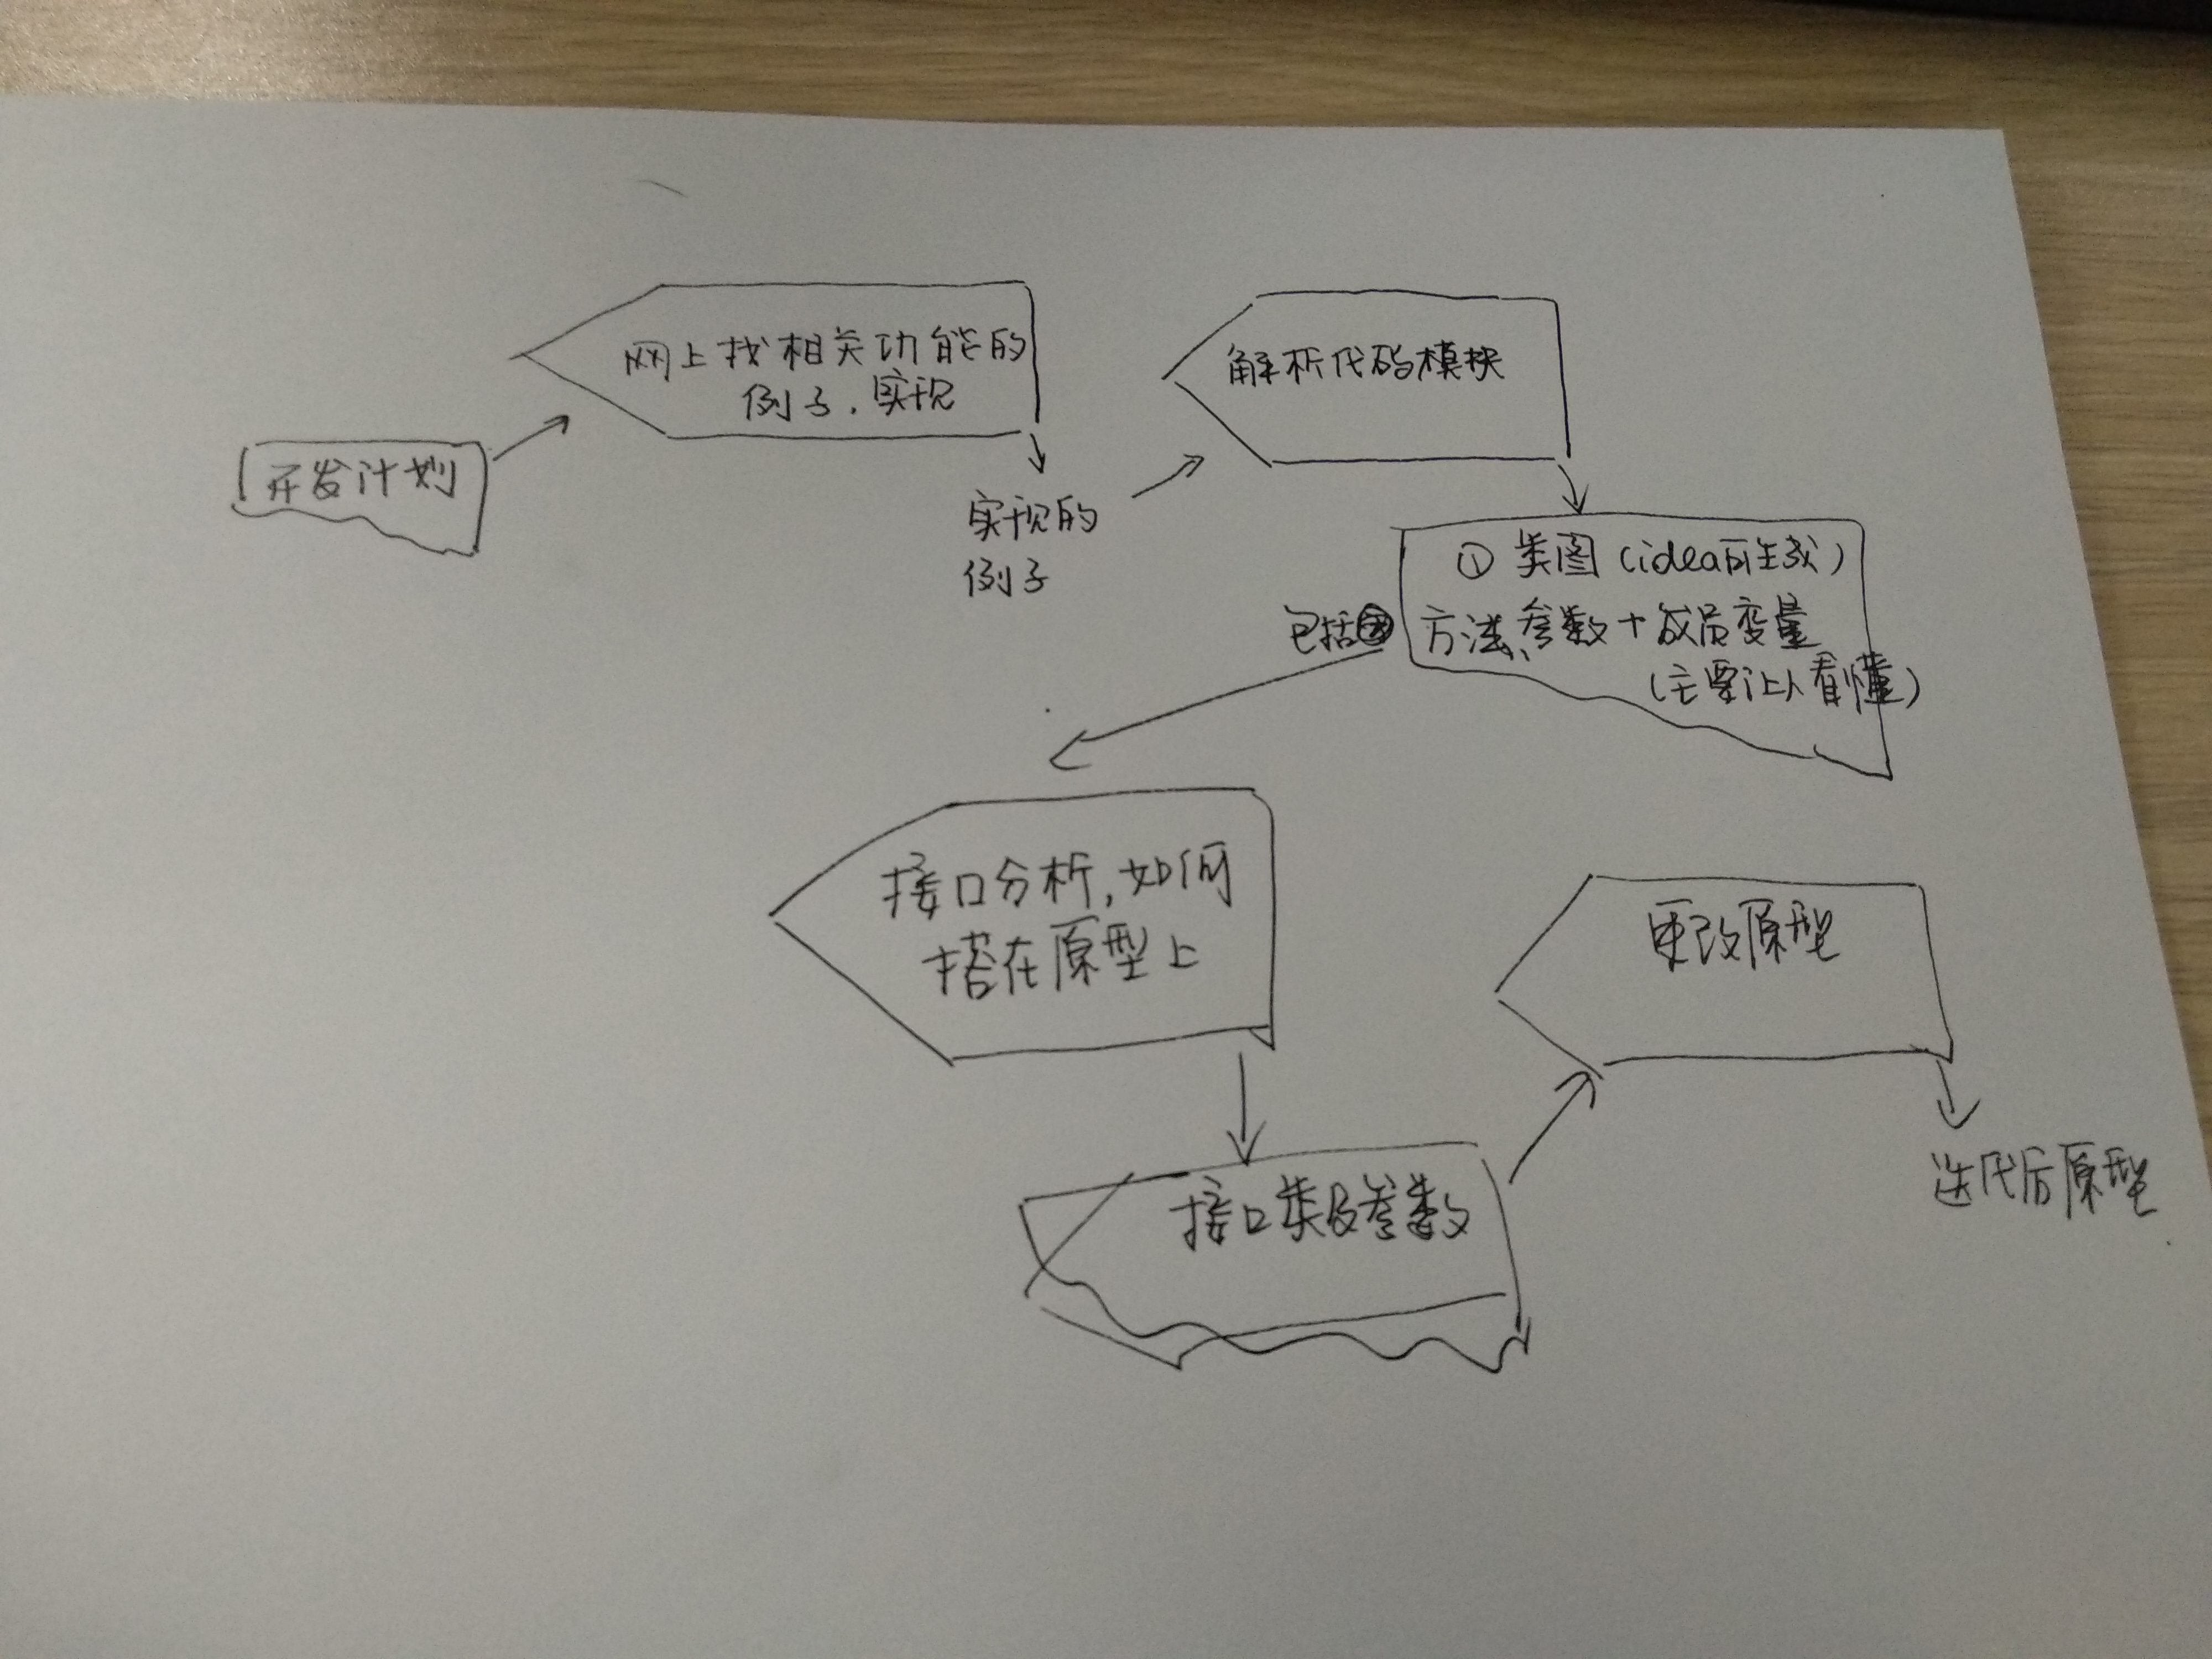 开发计划
网上找相关功能的
例子.实现
实现的
例子
解析代码模块
包括
①类图(idea可生成)
方法,参数+成员变量
(主要让人看懂)
接口分析,如何
搭在原型上
接口类及参数
更改原型
迭代后原型